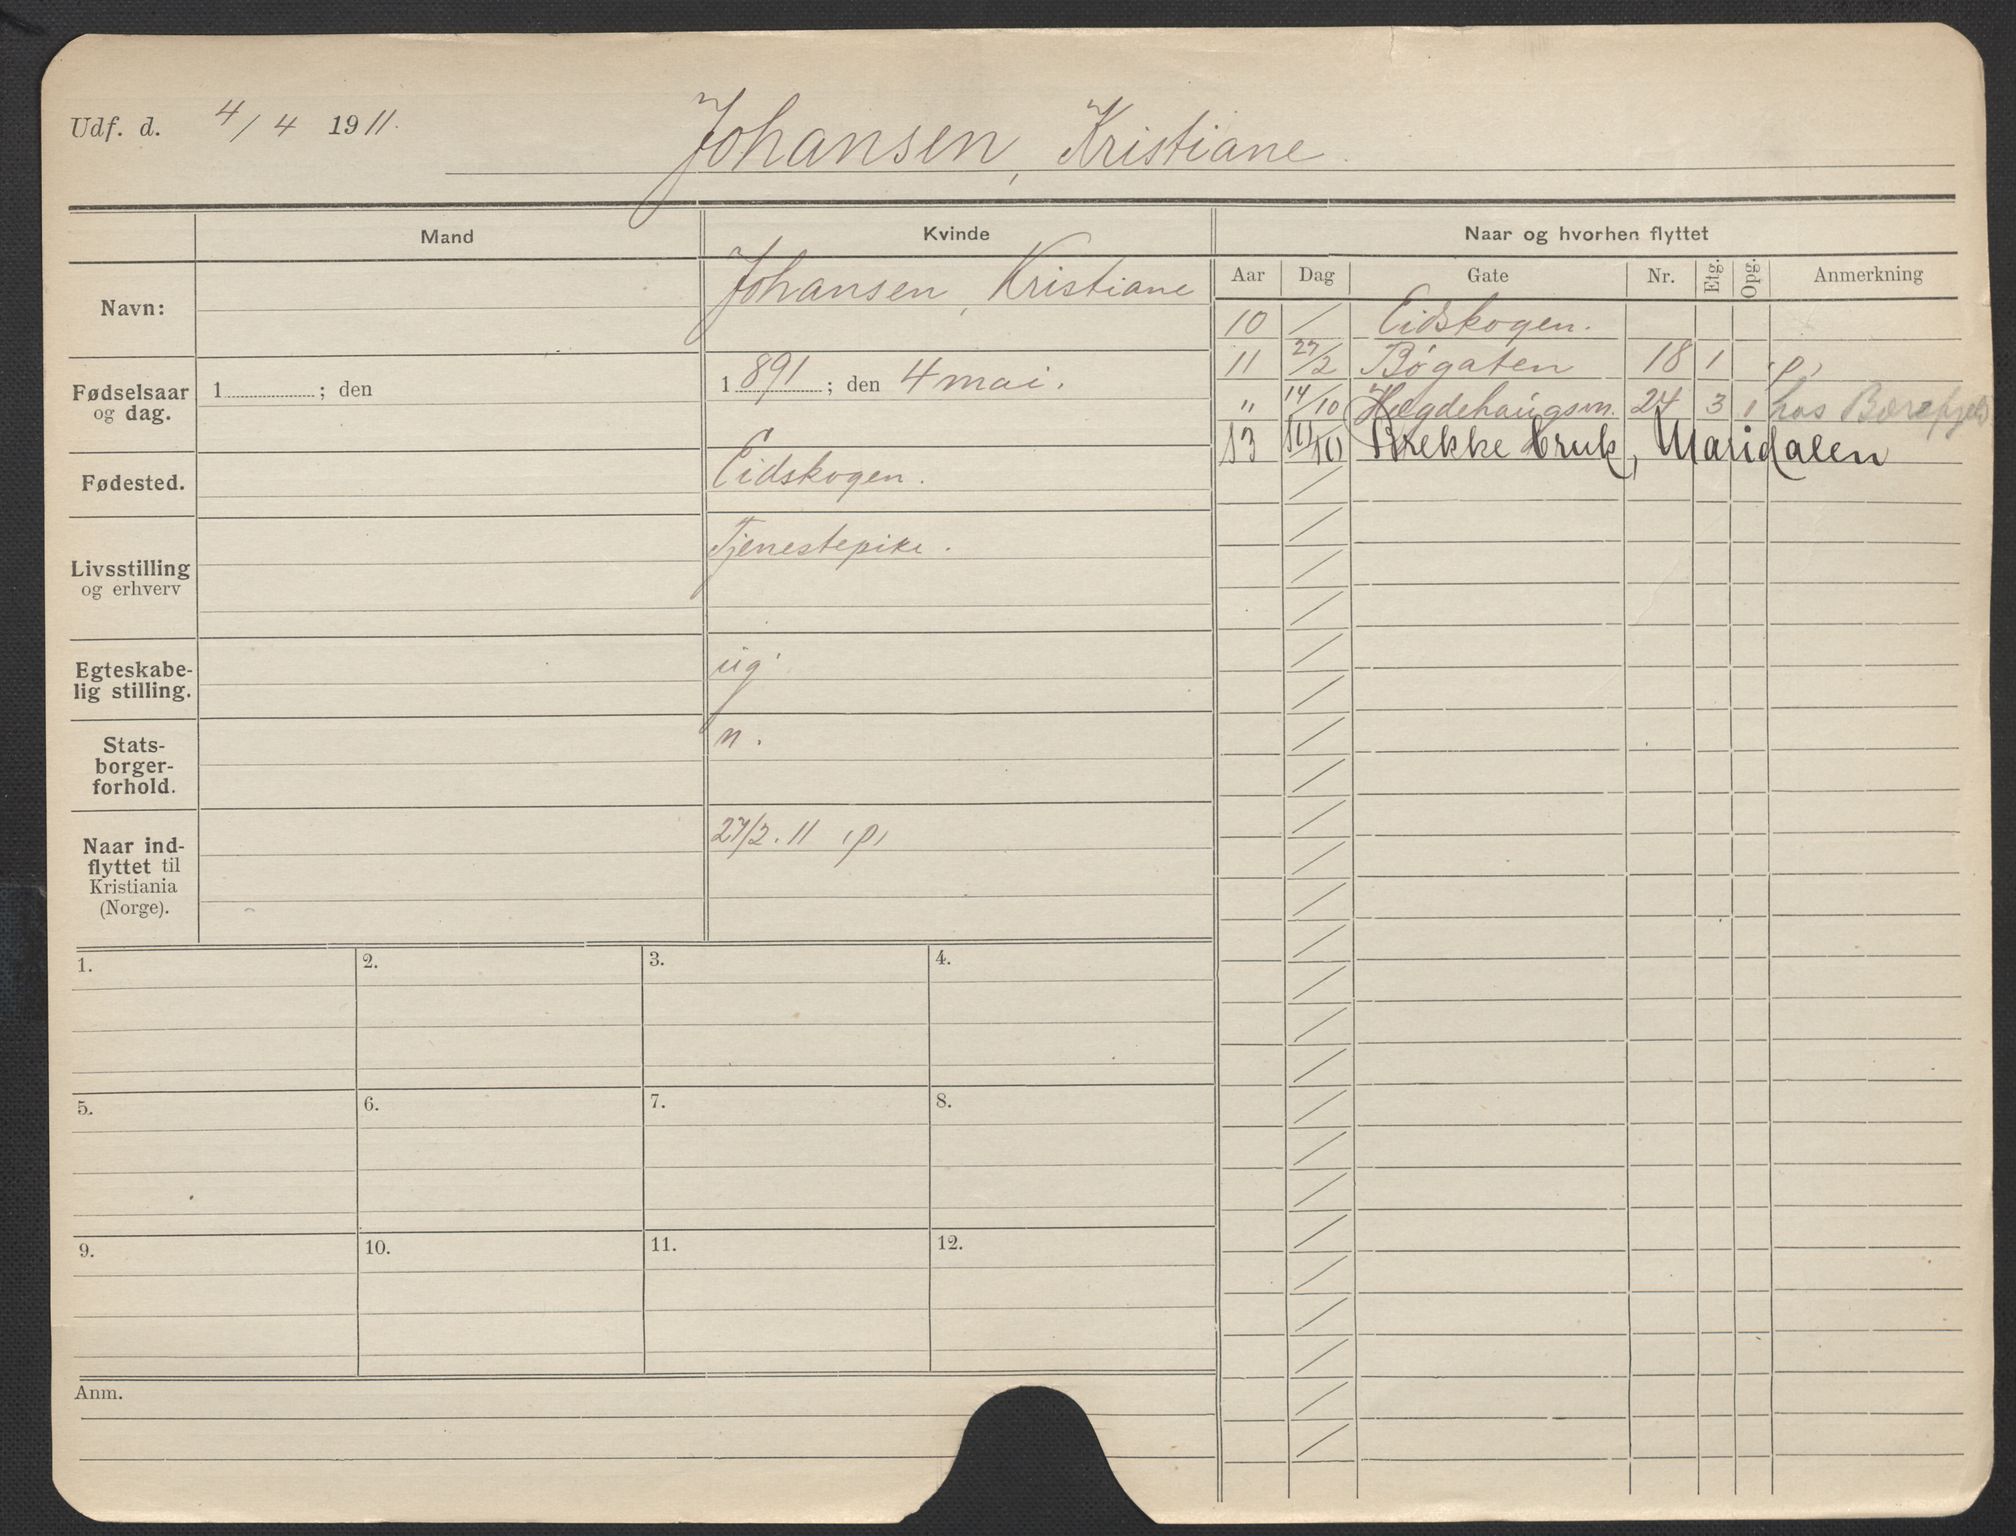 Udf. d. 4/4 1911.
Johansen, Kristiane.
Mand
Kvinde
Navn:
Johansen, Kristiane
Fødselsaar
og dag.
1 ; den
1891 ; den 4 mai.
Fødested.
Eidskogen.
Livsstilling
og erhverv
Tjenestepike.
Egteskabe-
lig stilling.
ug.
Stats-
borger-
forhold.
n.
Naar ind-
flyttet til
Kristiania
(Norge).
27/2. 11 ,p,
Naar og hvorhen flyttet
Aar Dag Gate Nr. Etg. Opg. Anmerkning
10 / Eidskogen.
11 27/2 Bøgaten 18 1 ,p,
„ 14/10 Hægdehaugsvn. 24 3 1 hos
13 /10 Brekke bruk, Maridalen
1.
2.
3.
4.
5.
6.
7.
8.
9.
10.
11.
12.
Anm.